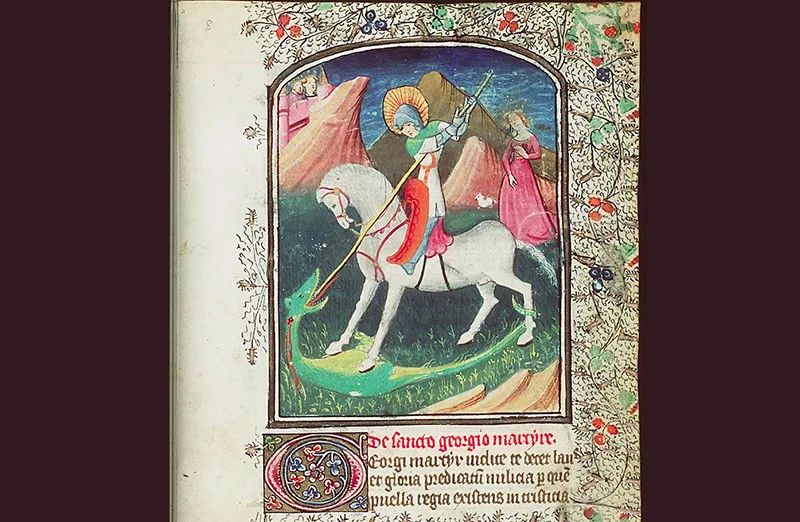 8
De sancto georgio martyre.
Georgi martyr inclite te decet lau
et gloria predicatũ milicia p quẽ
puella regia existens in tristicia